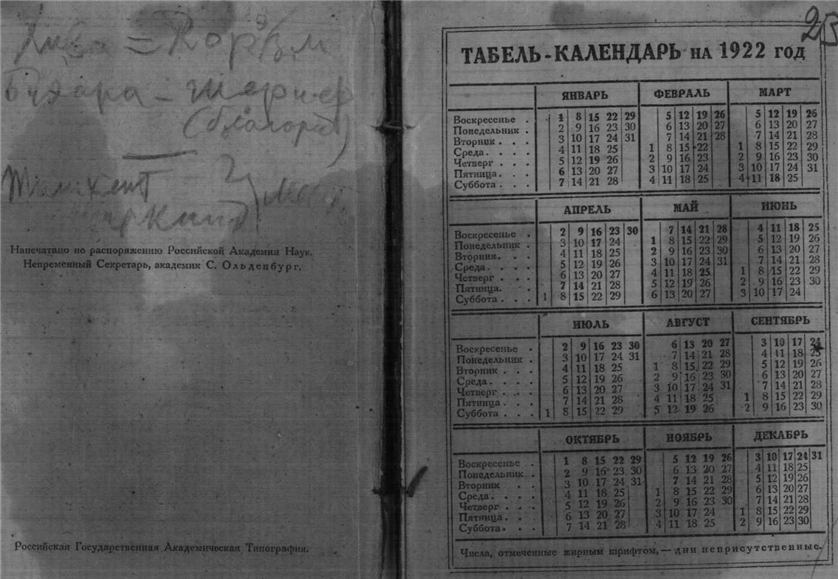 Хива = Хорезм
Бухара – Шериф
(благород)
Ташкент
Напечатано по распоряжению Российской Академии Наук.
Непременный Секретарь, академик С. Ольденбург.
Российская Государственная Академическая Типография.
ТАБЕЛЬ-КАЛЕНДАРЬ НА 1922 ГОД
ЯНВАРЬ ФЕВРАЛЬ МАРТ
Воскресенье . 1 8 15 22 29 5 12 19 26 5 12 19 26
Понедельник . 2 9 16 23 30 6 13 20 27 6 13 20 27
Вторник . . . 3 10 17 24 31 7 14 21 28 7 14 21 28
Среда. . . . 4 11 18 25 1 8 15 22 1 8 15 22 29
Четверг . . . 5 12 19 26 2 9 16 23 2 9 16 23 30
Пятница. . . . 6 13 20 27 3 10 17 24 3 10 17 24 31
Суббота . . . 7 14 21 28 4 11 18 25 4 11 18 25
АПРЕЛЬ МАЙ ИЮНЬ
Воскресенье . 2 9 16 23 30 7 14 21 28 4 11 18 25
Понедельник . 3 10 17 24 1 8 15 22 29 5 12 19 26
Вторник. . . 4 11 18 25 2 9 16 23 30 6 13 20 27
Среда. . . . 5 12 19 26 3 10 17 24 31 7 14 21 28
Четверг . . . 6 13 20 27 4 11 18 25 1 8 15 22 29
Пятница. . . 7 14 21 28 5 12 19 26 2 9 16 23 30
Суббота . . . 1 8 15 22 29 6 13 20 27 3 10 17 24
ИЮЛЬ АВГУСТ СЕНТЯБРЬ
Воскресенье . 2 9 16 23 30 6 13 20 27 3 10 17 24
Понедельник . 3 10 17 24 31 7 14 21 28 4 11 18 25
Вторник . . . 4 11 18 25 1 8 15 22 29 5 12 19 26
Среда. . . . 5 12 19 26 2 9 16 23 30 6 13 20 27
Четверг . . . 6 13 20 27 3 10 17 24 31 7 14 21 28
Пятница . . . 7 14 21 28 4 11 18 25 1 8 15 22 29
Суббота . . . 1 8 15 22 29 5 12 19 26 2 9 16 23 30
ОКТЯБРЬ НОЯБРЬ ДЕКАБРЬ
Воскресенье . 1 8 15 22 29 5 12 19 26 3 10 17 24 31
Понедельник . 2 9 16 23 30 6 13 20 27 4 11 18 25
Вторник . . 3 10 17 24 31 7 14 21 28 5 12 19 26
Среда. . . . 4 11 18 25 1 8 15 22 29 6 13 20 27
Четверг . . . 5 12 19 26 2 9 16 23 30 7 14 21 28
Пятница . . . 6 13 20 27 3 10 17 24 1 8 15 22 29
Суббота. . . 7 14 21 28 4 11 18 25 2 9 16 23 30
Числа, отмеченные жирным шрифтом, — дни неприсутственные.